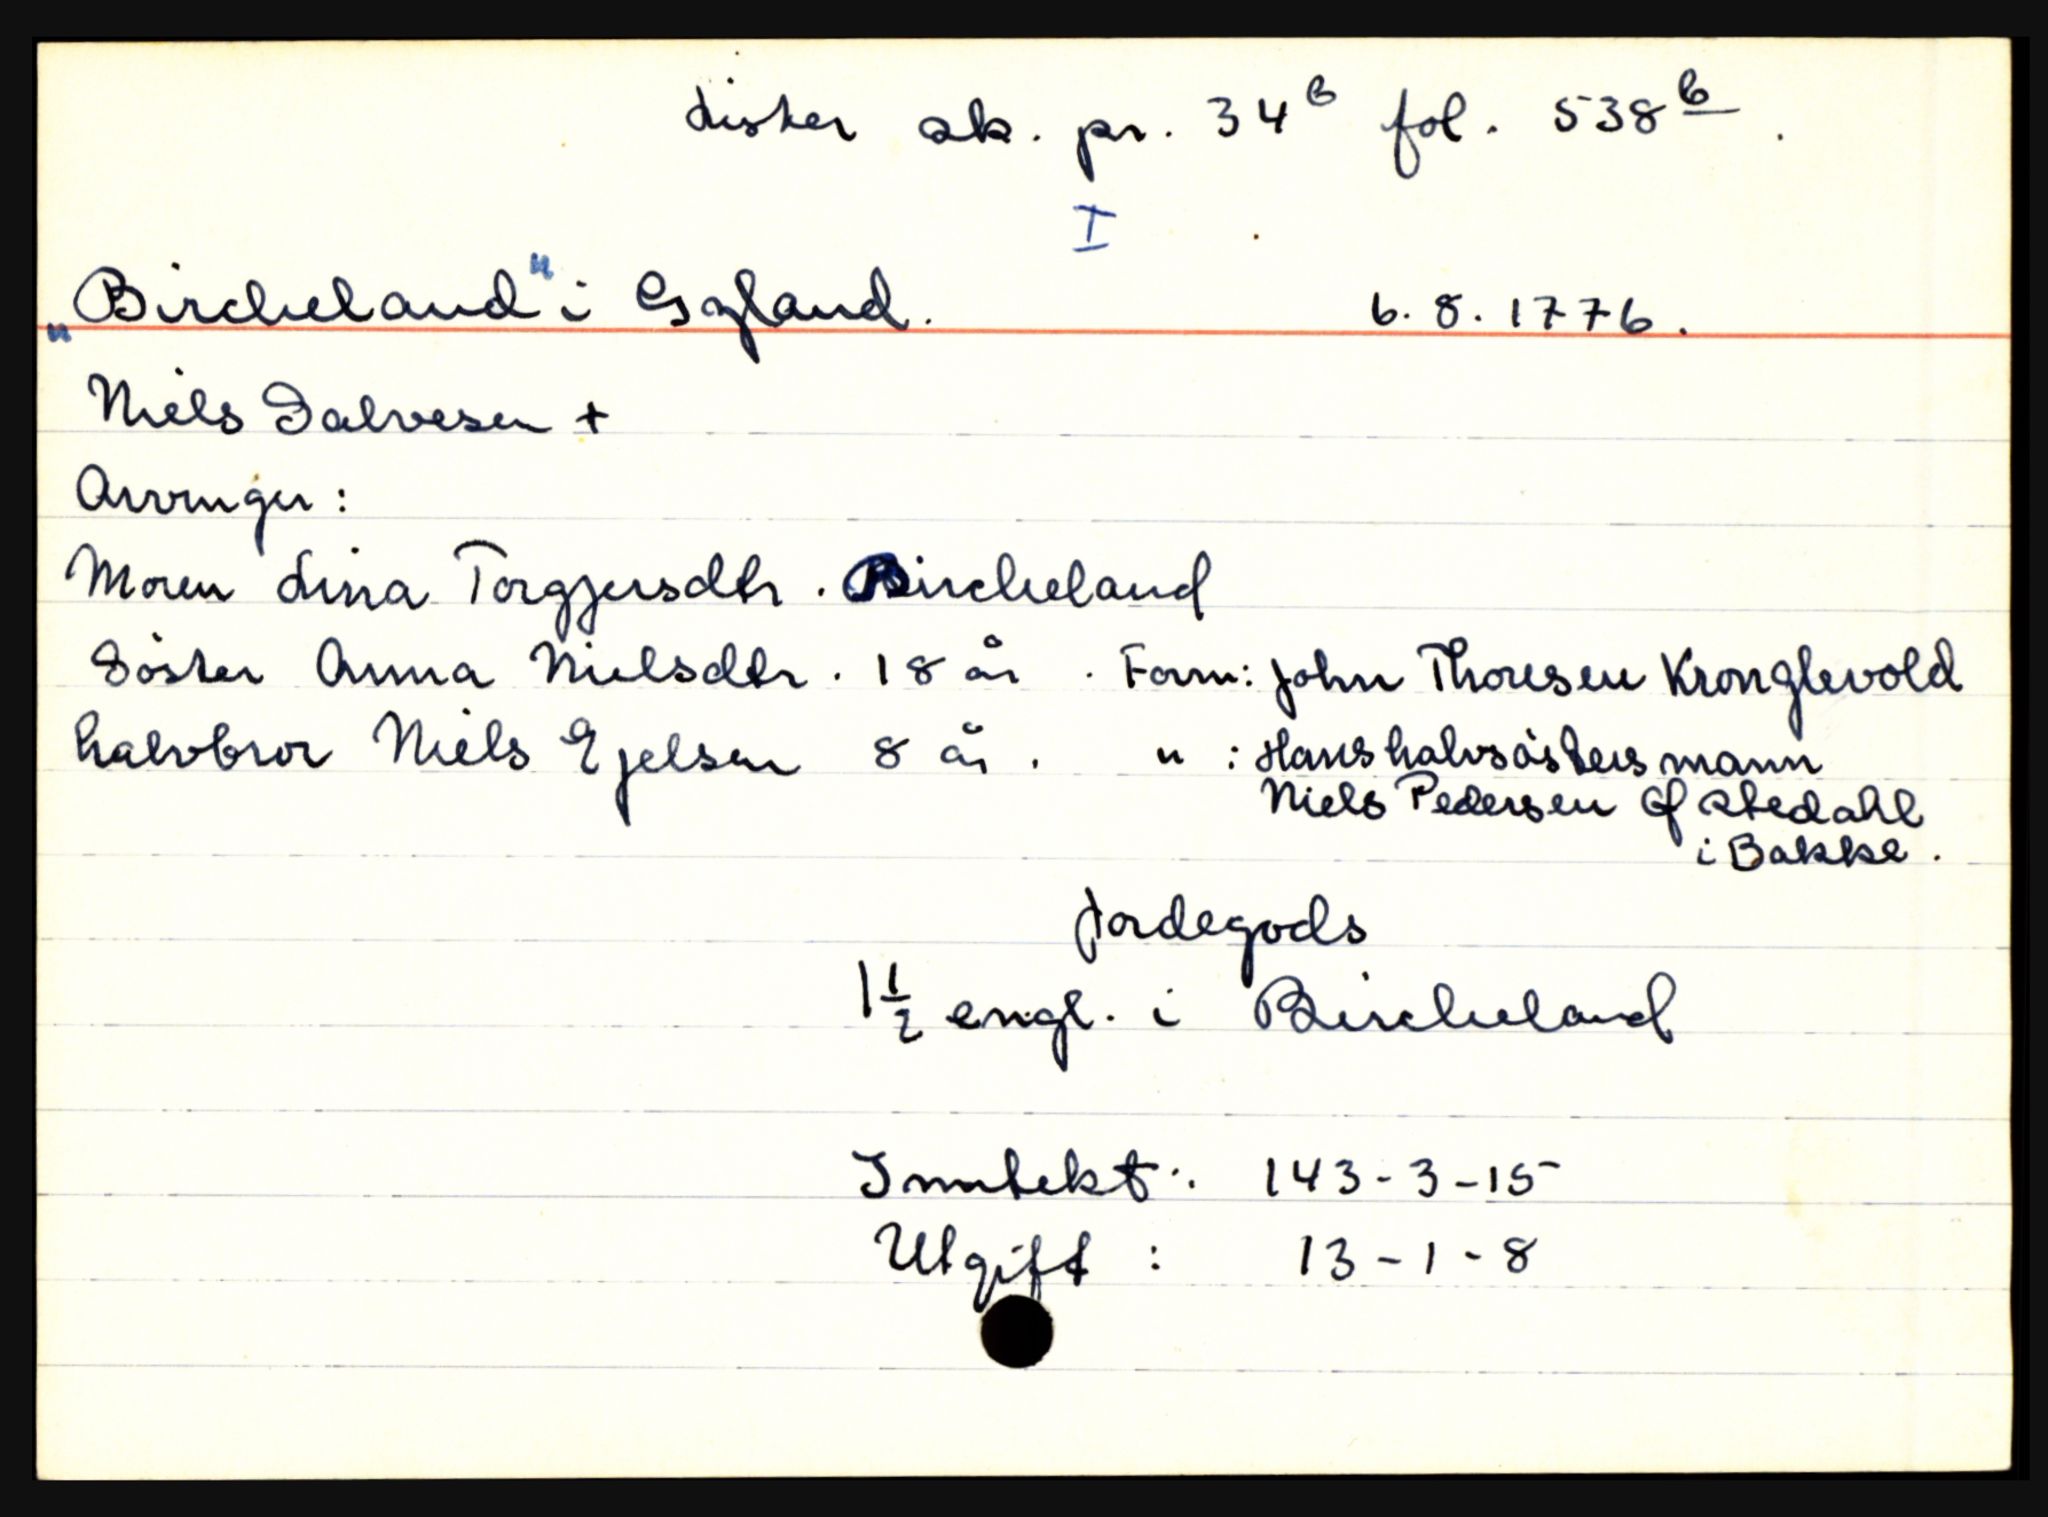 Lister sk. pr. 34 B fol. 538 b.
I
"Bircheland" i Gyland. 6.8.1776.
Niels Salvesen +
Arvinger:
Moren Lisa Torgjersdtr. Bircheland
Søster Anna Nielsdtr. 18 år. Form: John Thoresen Kronglevold
halvbror Niels Ejelsen 8 år. " : Hans halvsøsters mann
Niels Pedersen Øfstedahl
i Bakke.
Jordegods
1 1/2 engl. i Bircheland
Inntekt: 143-3-15
Utgift: 13-1-8